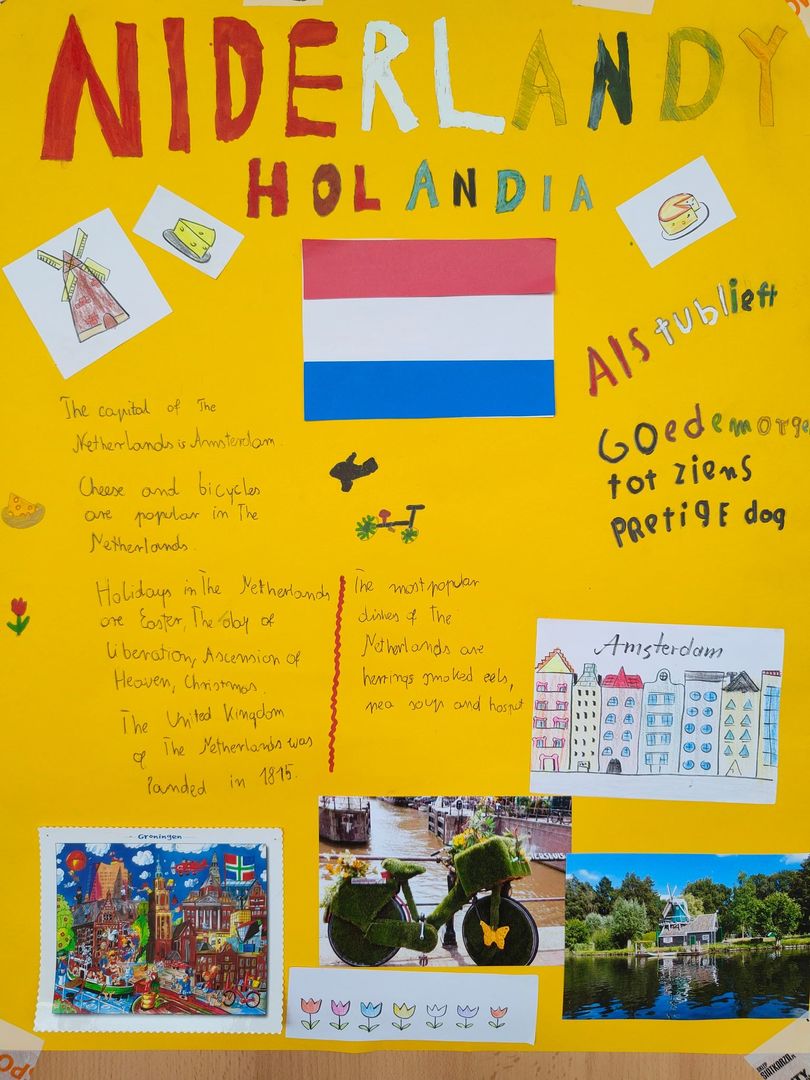 NIDERLANDY
HOLANDIA
Alstublieft
GOedemorge
tot ziens
PRetigE dog
The capital of The
Netherlands is Amsterdam.
Cheese and bicycles
are popular in The
Netherlands.
Holidays in The Netherlands
are Easter, The day of
Liberation, Ascension of
Heaven, Christmas.
The United Kingdom
of The Netherlands was
landed in 1815.
The most popular
dishes of The
Netherlands are
herrings smoked eels,
pea soup and hosput
Amsterdam
Groningen